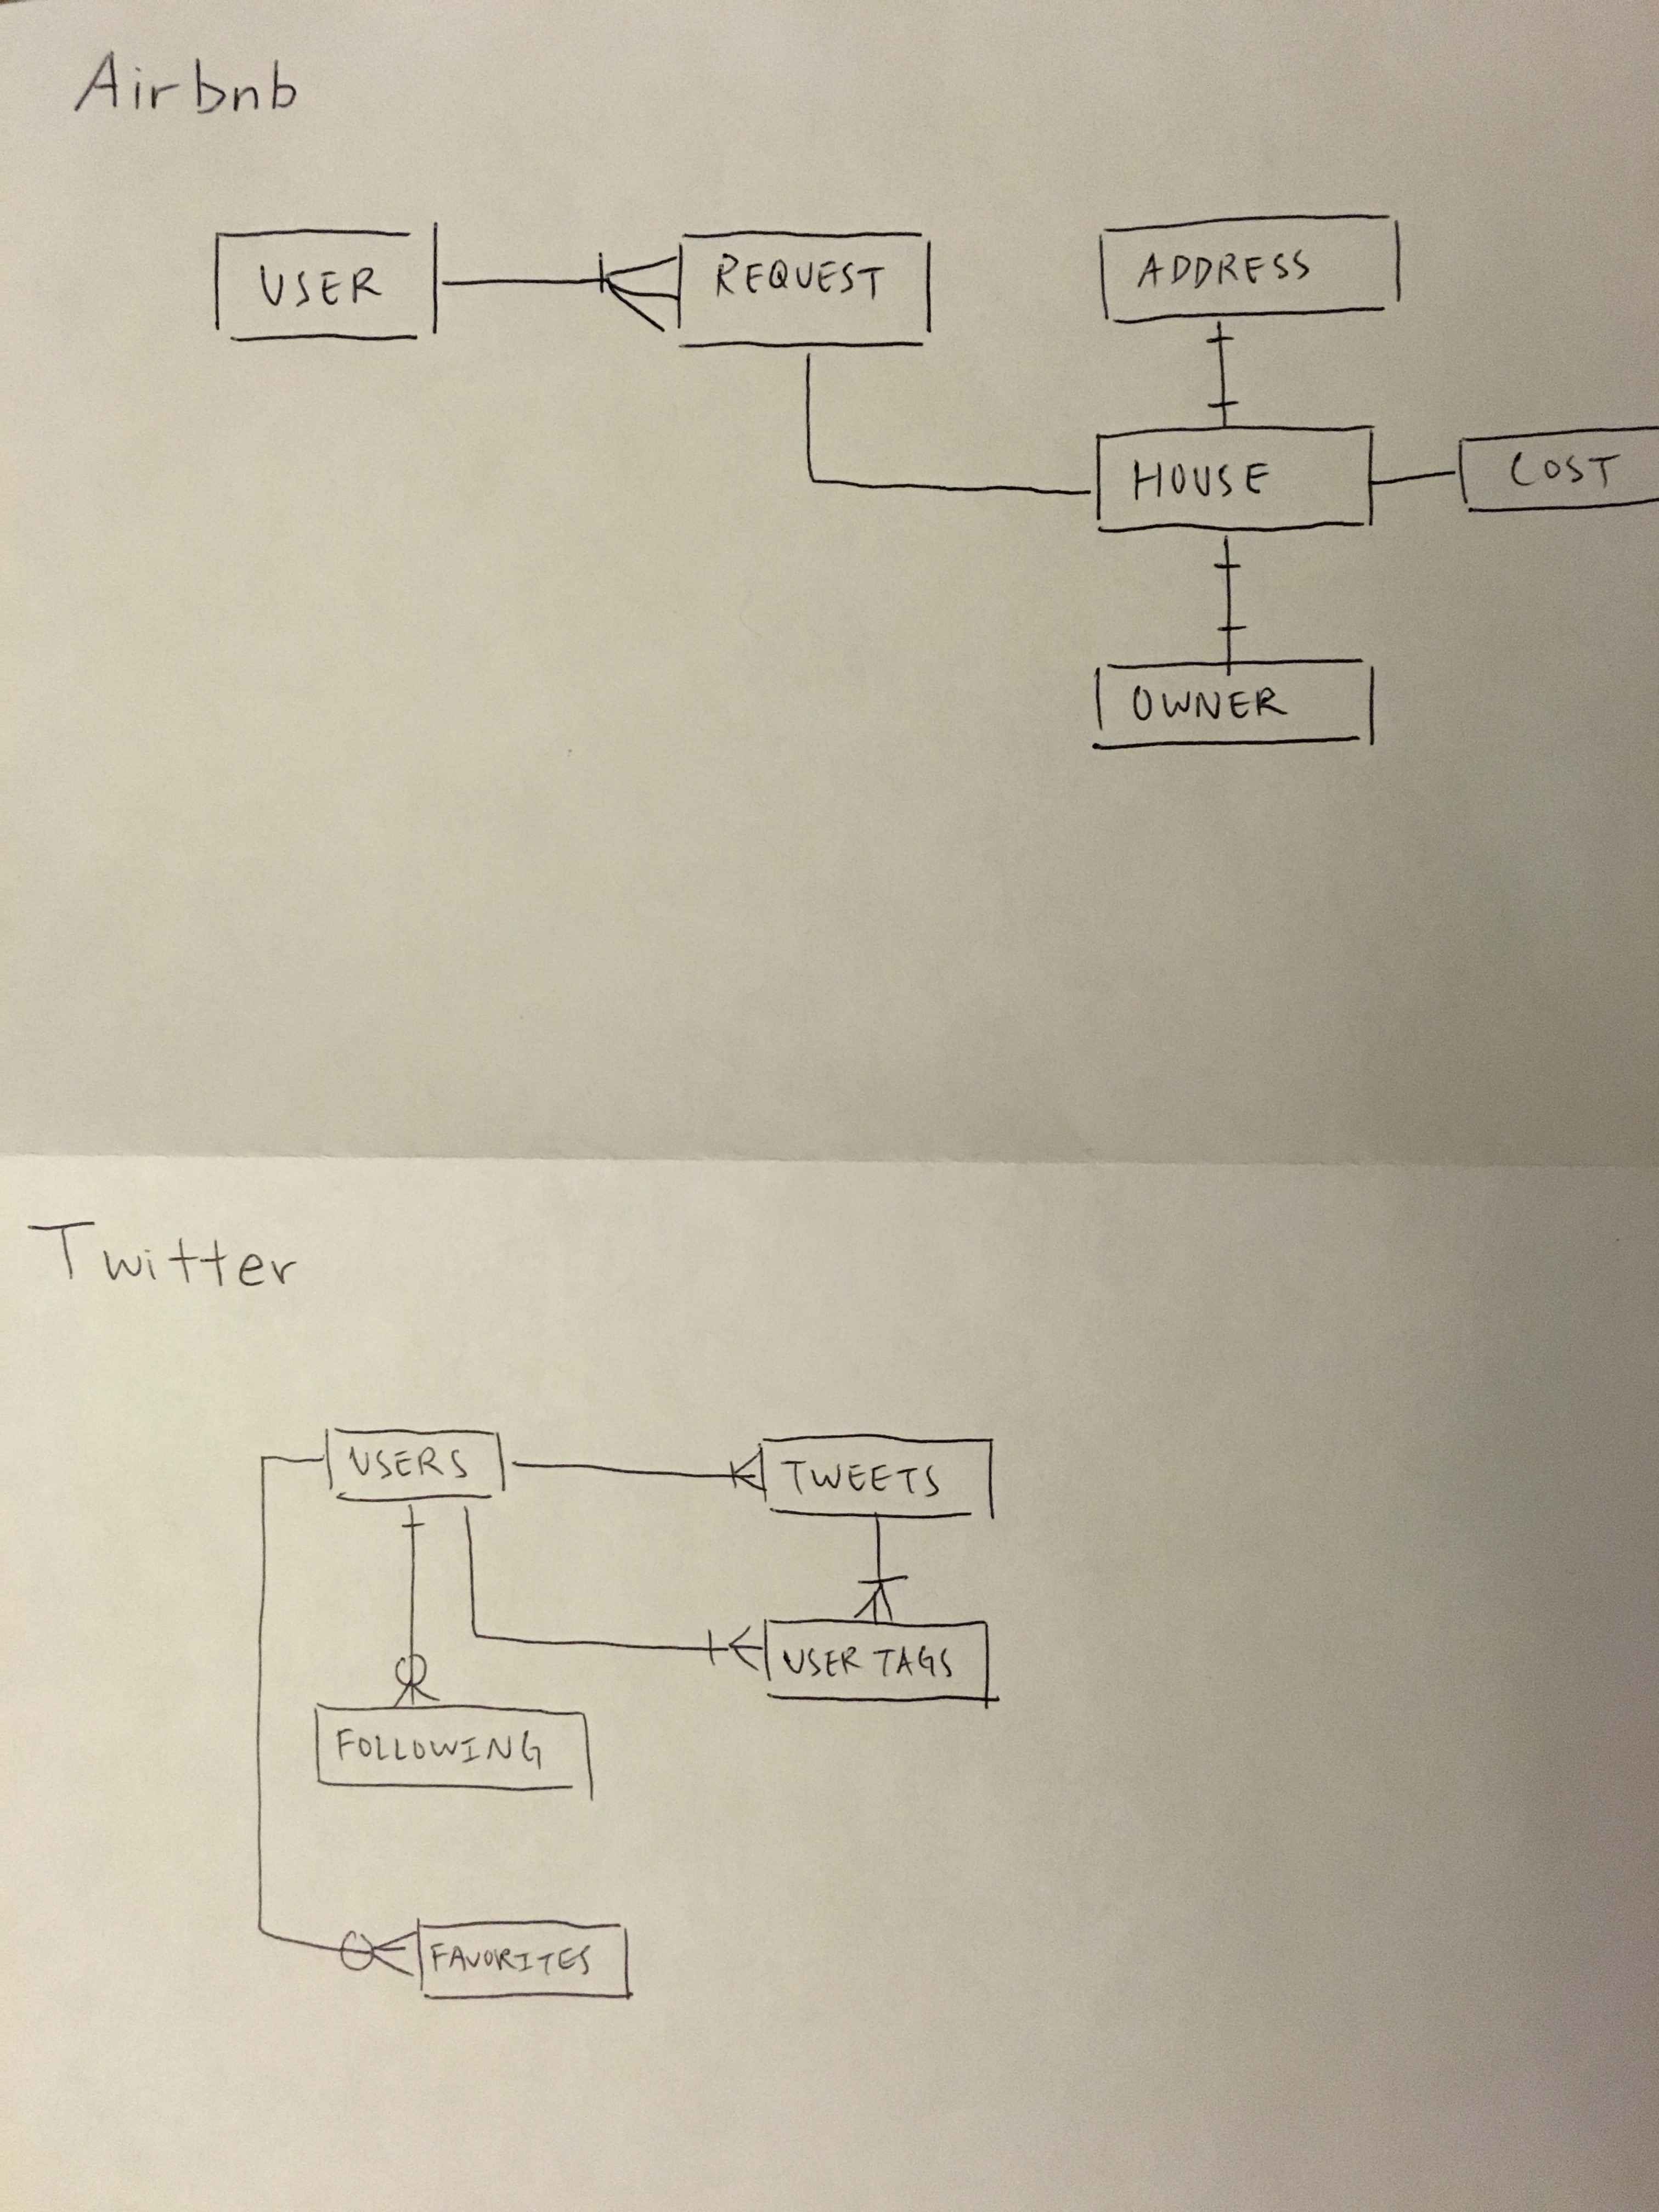 Airbnb
USER
REQUEST
ADDRESS
HOUSE
COST
OWNER
Twitter
USERS
TWEETS
USER TAGS
FOLLOWING
FAVORITES